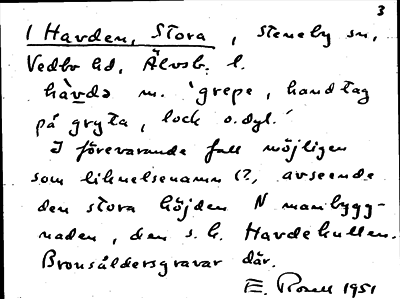 3
1 Havden, Stora, Steneby sn,
Vedbo hd, Älvsb. l.
hàvdə m. 'grepe, handtag
på gryta, lock o.dyl.'
I förevarande fall möjligen
som liknelsenamn (?, avseende
den stora höjden N manbygg-
naden, den s.k. Havdekullen.
Bronsåldersgravar där.
E. 1951